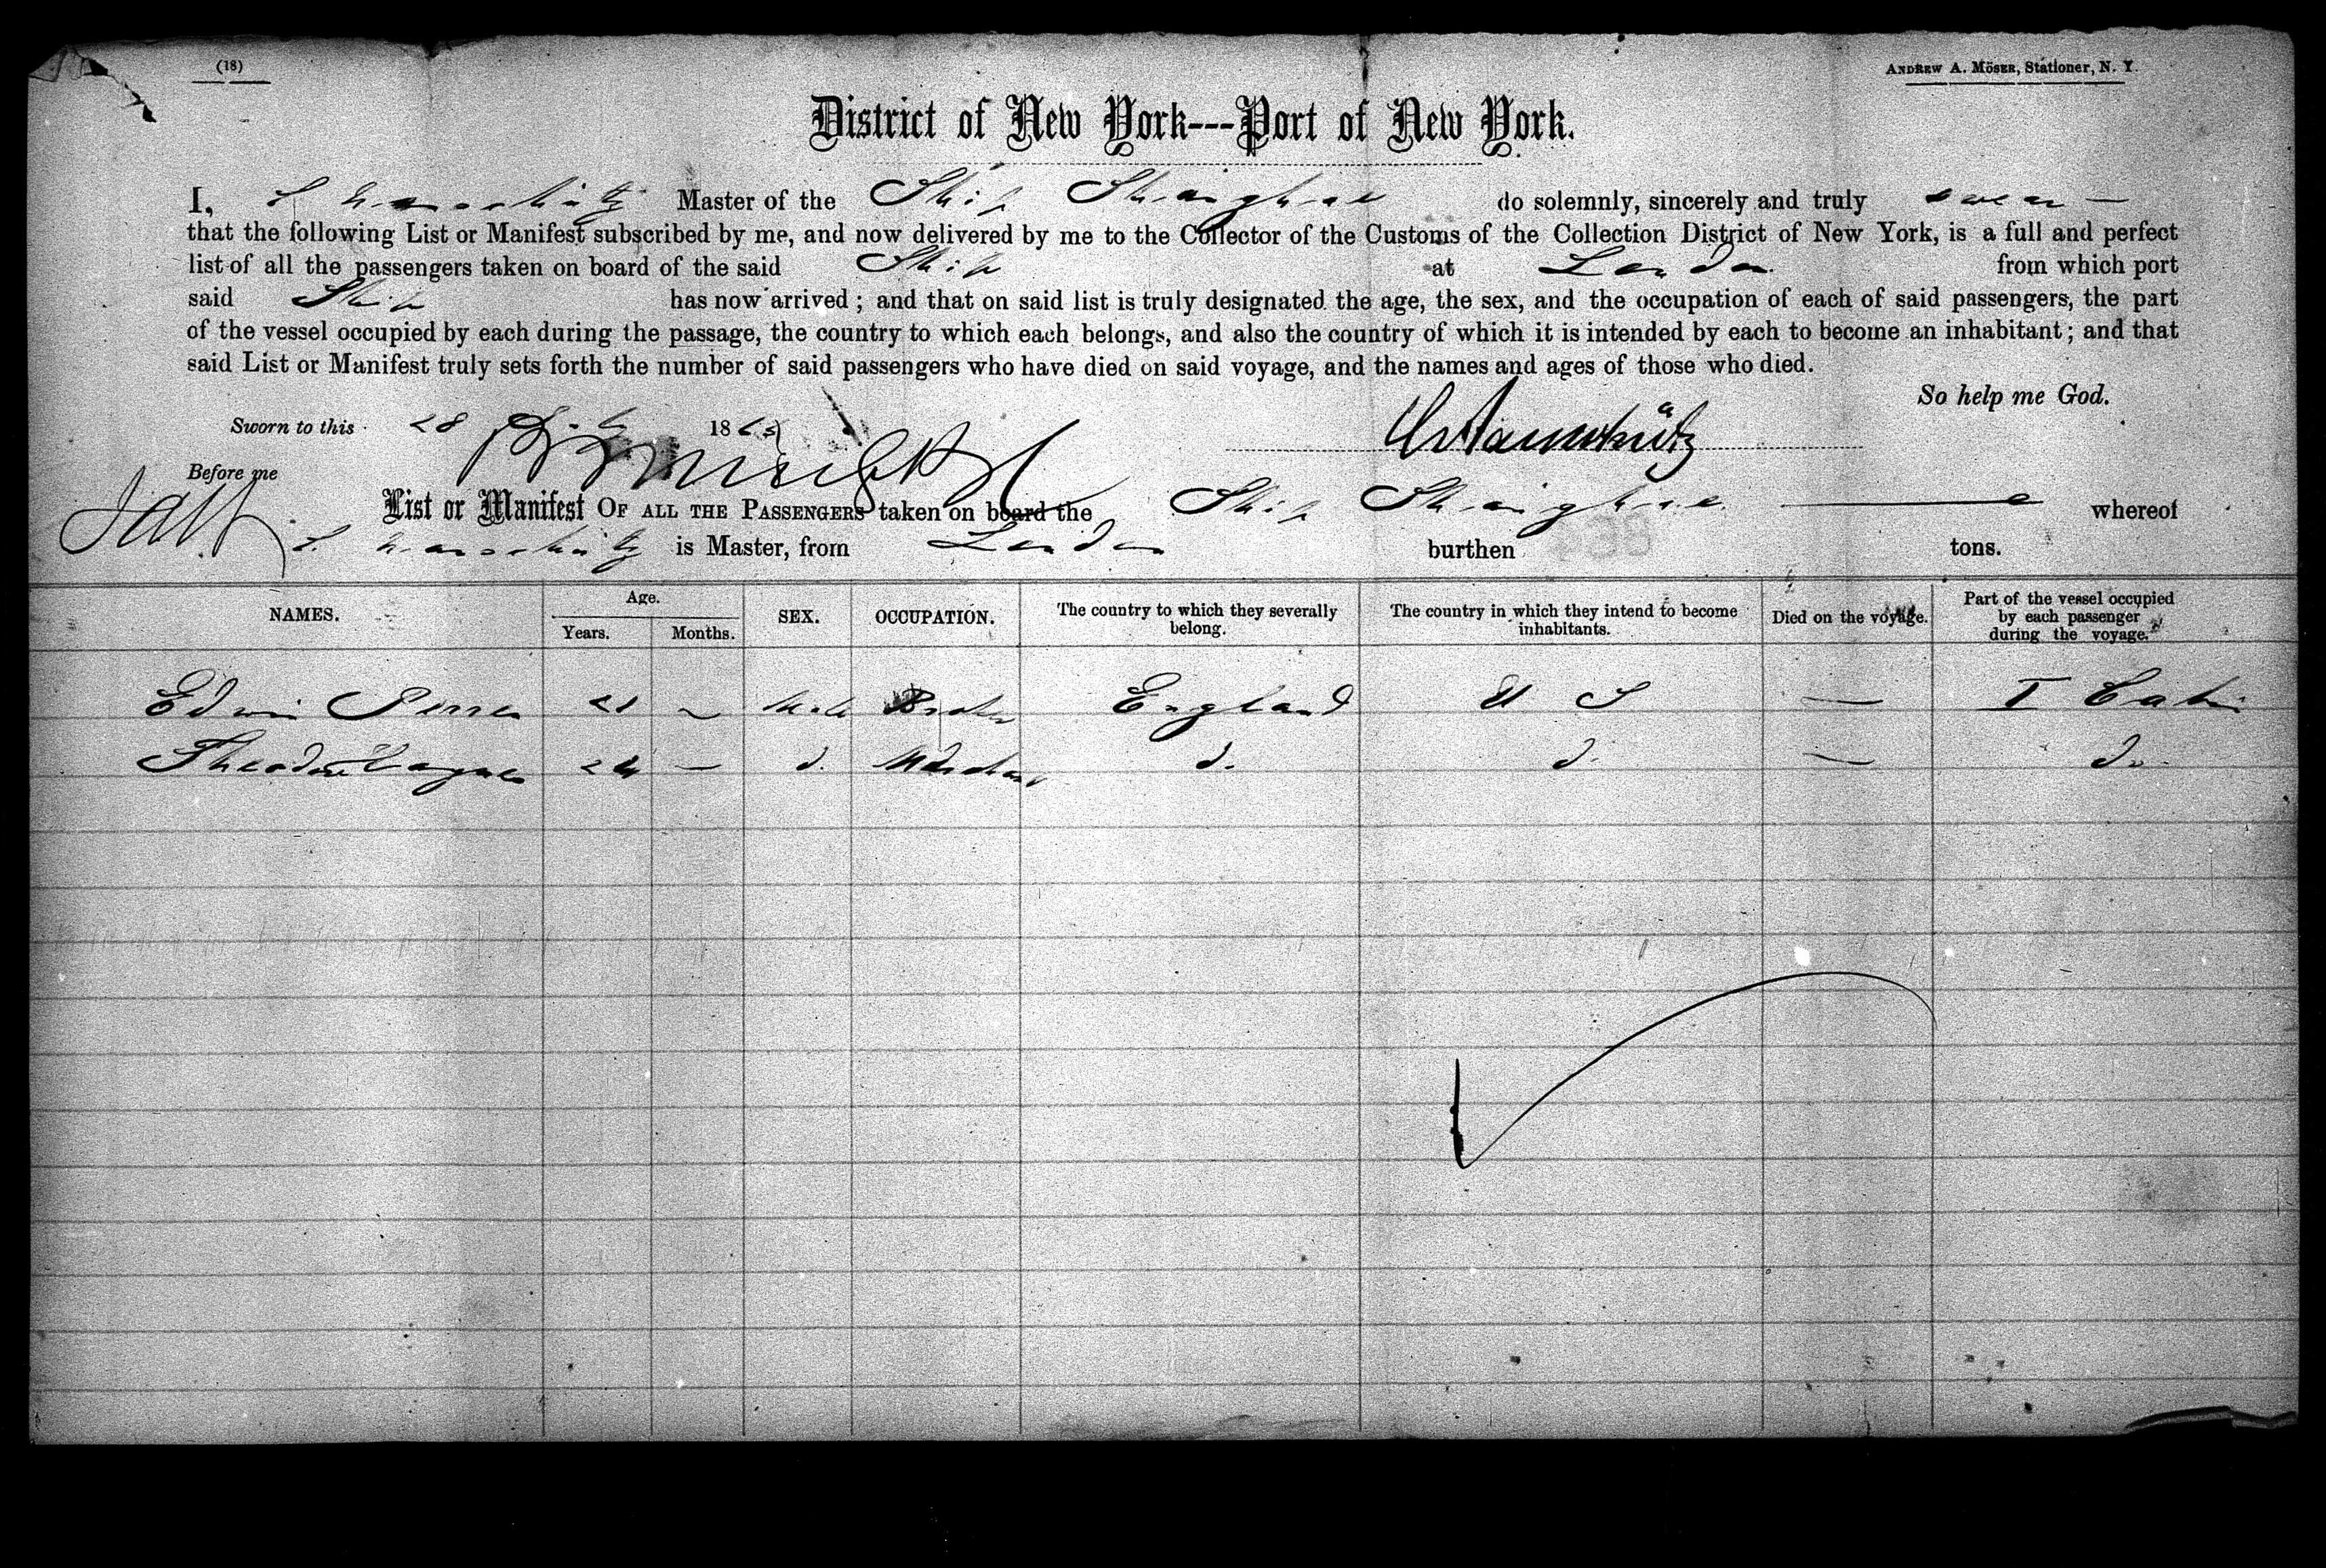 (18)
ANDREW A. MÖSER, Stationer, N. Y.
District of New York---Port of New York.
I, Master of the Ship Shanghae do solemnly, sincerely and truly swear —
that the following List or Manifest subscribed by me, and now delivered by me to the Collector of the Customs of the Collection District of New York, is a full and perfect
list of all the passengers taken on board of the said Ship at London from which port
said Ship has now arrived ; and that on said list is truly designated the age, the sex, and the occupation of each of said passengers, the part
of the vessel occupied by each during the passage, the country to which each belongs, and also the country of which it is intended by each to become an inhabitant ; and that
said List or Manifest truly sets forth the number of said passengers who have died on said voyage, and the names and ages of those who died.
So help me God.
Sworn to this 28 186
Before me
List or Manifest OF ALL THE PASSENGERS taken on board the Ship Shanghae — whereof
is Master, from London burthen tons.
NAMES. Age. Years. Months. SEX. OCCUPATION. The country to which they severally belong. The country in which they intend to become inhabitants. Died on the voyage. Part of the vessel occupied by each passenger during the voyage.
Edwin 21 — Male England U S — I Cabin
Theodore 24 — d. Merchant d. d. — do.